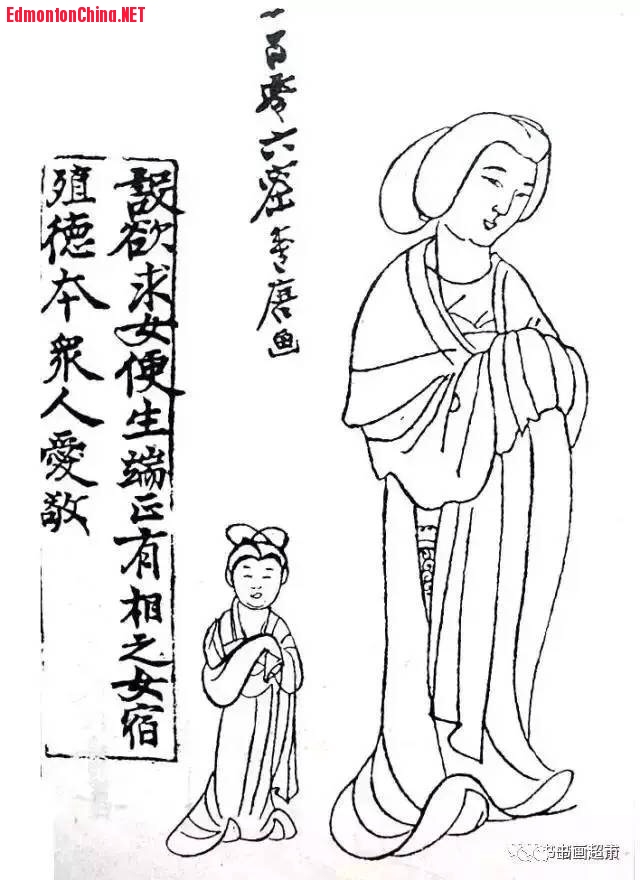 EdmontonChina.NET
一百零六唐画
設欲求女便生端正有相之女宿
殖德本衆人愛敬
书画超市